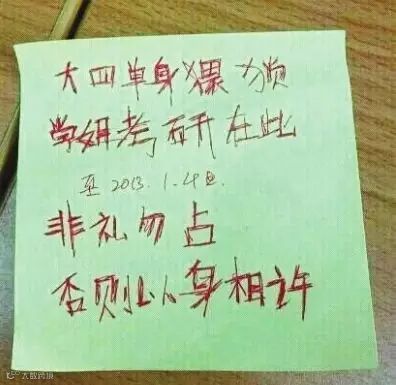 大四单身猥琐
学姐考研在此
至2013.1.4日.
非礼勿占
否则以身相许
大数跨境